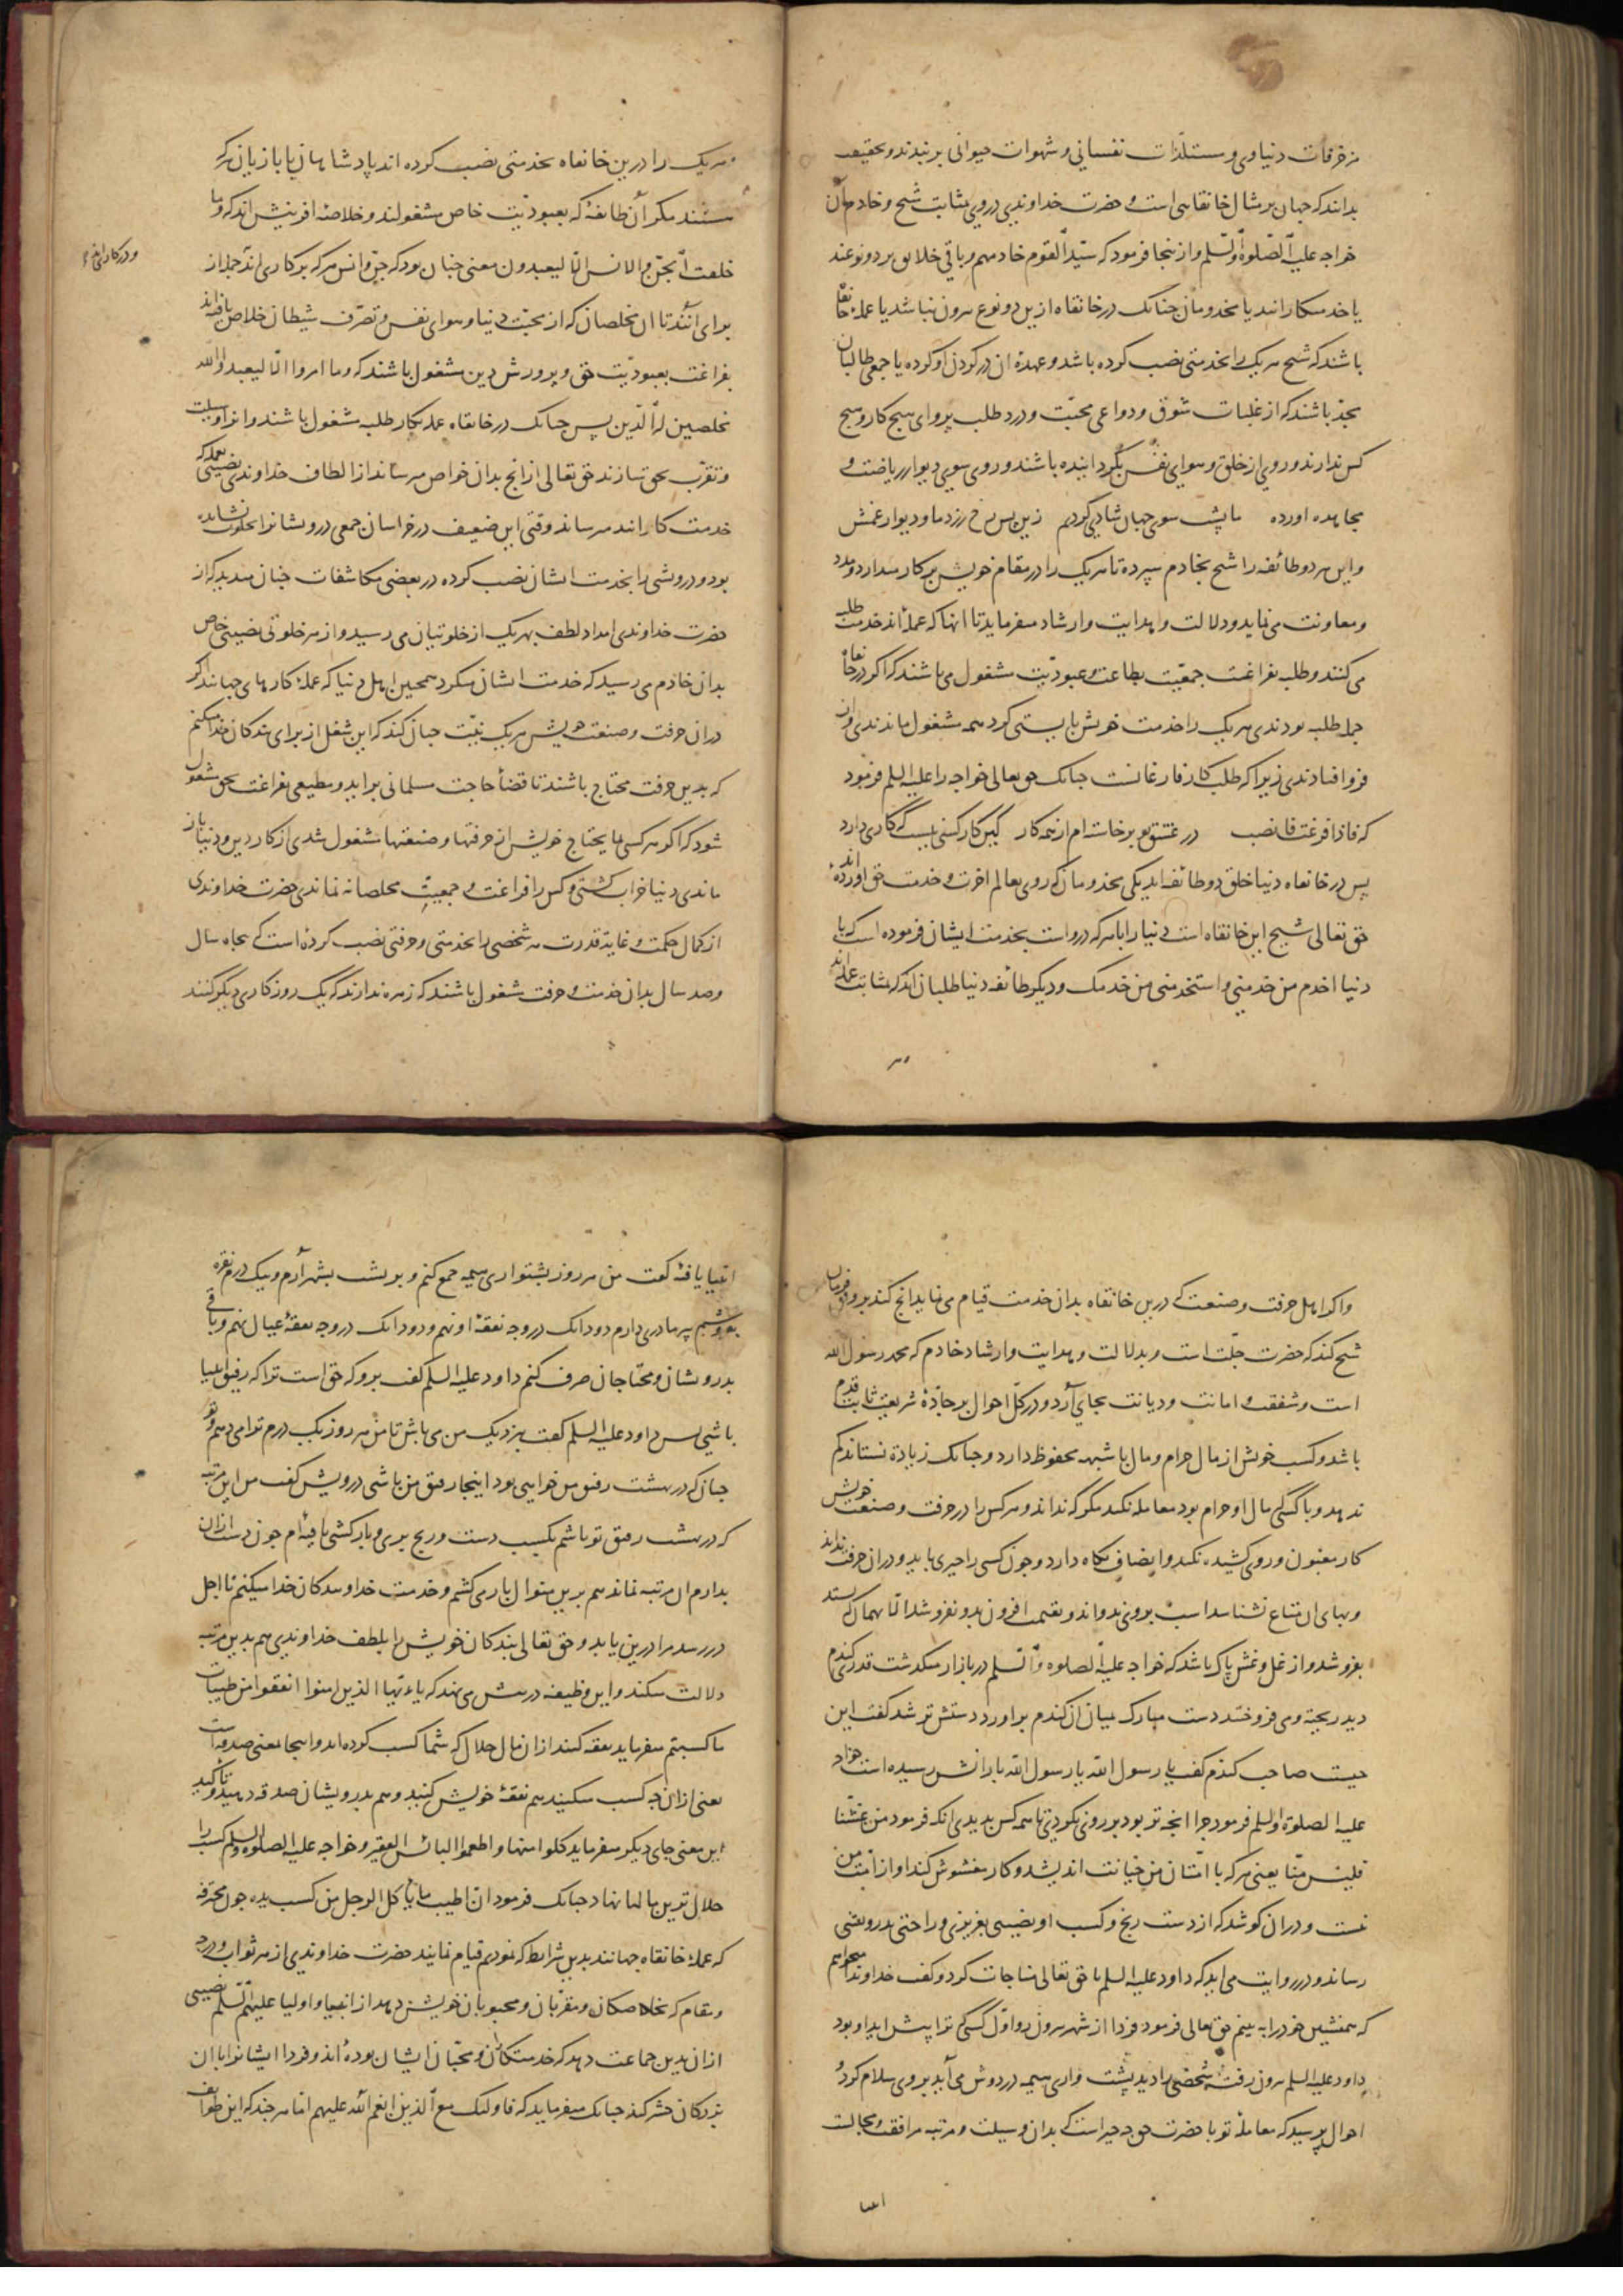 مزخرفات دنیاوی و مستلذات نفسانی و شهوات حیوانی بر نبندند و بحقیقت
بدانند که جهان بر مثال خانقاهی است و حضرت خداوندی در وی بمثابت شیخ و خادم آن
خواجه علیه الصلوة والسلم و از ینجا فرمود که سید القوم خادمهم و باقی خلایق بر دو نوعند
یا خدمتکارانند یا مخدومان جنانک در خانقاه ازین دو نوع بیرون نباشد یا عمله خانقاه
باشند که شیخ هر یک را بخدمتی نصب کرده باشد و عهده آن در کردن او کرده یا جمعی طالبان
بجد باشند که از غلبات شوق و دواعی محبت و درد طلب پروای هیچ کار و هیچ
کس ندارند و روی از خلق و هوای نفس بگردانیده باشند و روی سوی دیوار ریاضت و
مجاهده آورده ما پشت سوی جهان شادی کردیم زین پس رخ زرد ما و دیوار غمش
و این هر دو طائفه را شیخ بخادم سپرده تا هر یک را در مقام خویش بر کار میدارد و مدد
و معاونت می نماید و دلالت و هدایت و ارشاد میفرماید تا آنها که عمله اند خدمت طلبه
می کنند و طلبه بفراغت جمعیت بطاعت و عبودیت مشغول می باشند که اگر در خانقاه
جمله طلبه بودندی هر یک را خدمت خویش بایستی کرد همه مشغول ماندندی و از
فرو افتادندی زیرا که طلب کار فارغانست جنانک حق تعالی خواجه را علیه السلم فرمود
که فاذا فرغت فانصب در عشق تو بر خاسته ام از همه کار کین کار کسی نیست که کاری دارد
پس در خانقاه دنیا خلق دو طائفه اند یکی مخدومان که روی بعالم آخرت و خدمت حق آورده اند
حق تعالی شیخ این خانقاه است دنیا را با هر که در و است بخدمت ایشان فرموده است که یا
دنیا اخدم من خدمنی و استخدمی من خدمک و دیگر طائفه دنیا طلبان اند که بمثابت عمله اند
هر
هر یک را درین خانقاه بخدمتی نصب کرده اند پادشاهان با بازیان که
هستند مکر آن طائفه که بعبودیت خاص مشغولند و خلاصه آفرینش اند که و ما
خلقت الجن و الانس الا لیعبدون معنی جنان بود که جن و انس هر که بر کاری اند جمله از
برای آنند تا آن مخلصان که از محبت دنیا و هوای نفس و تصرف شیطان خلاص یافته اند
بفراغت بعبودیت حق و پرورش دین مشغول باشند که و ما امروا الا لیعبدوا الله
مخلصین له الدین پس جنانک در خانقاه عمله بکار طلبه مشغول باشند و انرا وسیلت
و تقرب بحق سازند حق تعالی از آنج بدان خواص میرساند از الطاف خداوندی نصیبی بعمله که
خدمت کارانند میرساند وقتی این ضعیف در خراسان جمعی درویشانرا بخلوت نشانده
بود و درویشی را بخدمت ایشان نصب کرده در بعضی مکاشفات جنان میدید که از
حضرت خداوندی امداد لطف بهر یک از خلوتیان می رسید و از هر خلوتی نصیبی خاص
بدان خادم می رسید که خدمت ایشان میکرد همچنین اهل دنیا که عمله کارهای جهانند اگر
در آن حرفت و صنعت خویش هر یک نیت جنان کند که این شغل از برای بندکان خدا میکنم
که بدین حرفت محتاج باشند تا قضاء حاجت مسلمانی براید و مطیعی بفراغت بحق مشغول
شود که اگر هر کسی بما یحتاج خویش از حرفتها و صنعتها مشغول شدی از کار دین و دنیا باز
ماندی دنیا خراب گشتی و کس را فراغت و جمعیت مخلصانه نماندی حضرت خداوندی
از کمال حکمت و غایت قدرت هر شخصی را بخدمتی و حرفتی نصب کرده است که پنجاه سال
و صد سال بدان خدمت و حرفت مشغول باشند که زهره ندارند که یک روز کاری دیگر کنند
واگر اهل حرفت و صنعت که درین خانقاه بدان خدمت قیام می نماید انج کند بر وفق فرمان
شیخ کند که حضرت جلت است و بدلالت و هدایت و ارشاد خادم که محمد رسول الله
است و شفقت و امانت و دیانت بجای آرد و در کل احوال بر جاده شریعت ثابت قدم
باشد و کسب خویش از مال حرام و مال با شبهه محفوظ دارد و جنانک زیاده نستاند کم
ندهد و با کسی که مال او حرام بود معامله نکند مکر که نداند و هر کس را در حرفت و صنعت خویش
کار مغبون و روی کشیده نکند و انصاف نکاه دارد و جون کسی را جیزی باید و در آن حرفت نداند
و بهای آن متاع نشناسد اسب بر وی ندواند و بقیمت افزون بدو نفروشد الا بهمان که ستد
بفروشد و از غل و غش پاک باشد که خواجه علیه الصلوة والسلم در بازار میگذشت قدری گندم
دید ریخته و می فروختند دست مبارک میان آن کندم برآورد دستش تر شد گفت این
جیست صاحب کندم گفت یا رسول الله یا رسول الله بارانش رسیده است خواجه
علیه الصلوة والسلم فرمود جرا آنچه تر بود بر روی نکردی تا همه کس بدیدی آنکه فرمود من غشنا
فلیس منا یعنی هر که با امتان من خیانت اندیشد و کار مغشوش کند او از امت من
نیست و در آن کوشد که از دست رنج و کسب او نصیبی بعزیزی و راحتی بدرویشی
رساند و در روایت می آید که داود علیه السلم با حق تعالی مناجات کرد و گفت خداوندا میخواهم
که همنشین خود را به بینم حق تعالی فرمود فردا از شهر بیرون رو اول کسی که ترا پیش آید او بود
داود علیه السلم بیرون رفت شخصی را دید پشت واری هیمه در دوش می آید بروی سلام کرد و
احوال پرسید که معامله تو با حضرت حق جه جیز است که بدان وسیلت و مرتبه مرافقت و مجالست
انبیا
انبیا یافته گفت من هر روز پشتواری هیمه جمع کنم و بر پشت بشهر آرم و بیک درم نقره
بفروشم پیر مادری دارم دو دانک در وجه نفقه او نهم و دو دانک در وجه نفقه عیال نهم و باقی
بدرویشان و محتاجان صرف کنم داود علیه السلم گفت برو که حق است ترا که رفیق انبیا
باشی پس داود علیه السلم گفت بنزدیک من می باش تا من هر روز یک درم ترا می دهم و تو
جنان که در بهشت رفیق من خواهی بود اینجا رفیق من باشی درویش گفت من این مرتبه
که در بهشت رفیق تو باشم بکسب دست و رنج بری و بارکشی یافته ام جون دست از آن
بدارم آن مرتبه نماند هم برین منوال بار می کشم و خدمت خداوند و بندکان خدا میکنم تا اجل
در رسد مرا درین یابد و حق تعالی بندکان خویش را بلطف خداوندی هم بدین مرتبه
دلالت میکند و این وظیفه در پیش می نهد که یا ایها الذین امنوا انفقوا من طیبات
ما کسبتم میفرماید نفقه کنند از آن مال حلال که شما کسب کرده اید و اینجا معنی صدقه است
یعنی از آن جه کسب میکنید هم نفقه خویش کنید و هم بدرویشان صدقه دهید و تاکید
این معنی جای دیگر میفرماید کلوا منها و اطعموا البائس الفقیر و خواجه علیه الصلوة والسلم کسب را
حلال ترین مالها نهاد جنانک فرمود ان اطیب ما یاکل الرجل من کسب یده جون محترفه
که عمله خانقاه جهانند بدین شرایط که نمودیم قیام نمایند حضرت خداوندی از هر ثواب و درجه
و مقام که بخلاصکان و مقربان و محبوبان خویش دهد از انبیا و اولیا علیهم السلم نصیبی
از آن بدین جماعت دهد که خدمتکاران و محبان ایشان بوده اند و فردا ایشانرا با آن
بزرکان حشر کند جنانک میفرماید که فاولئک مع الذین انعم الله علیهم اما هر جند که این طوایف